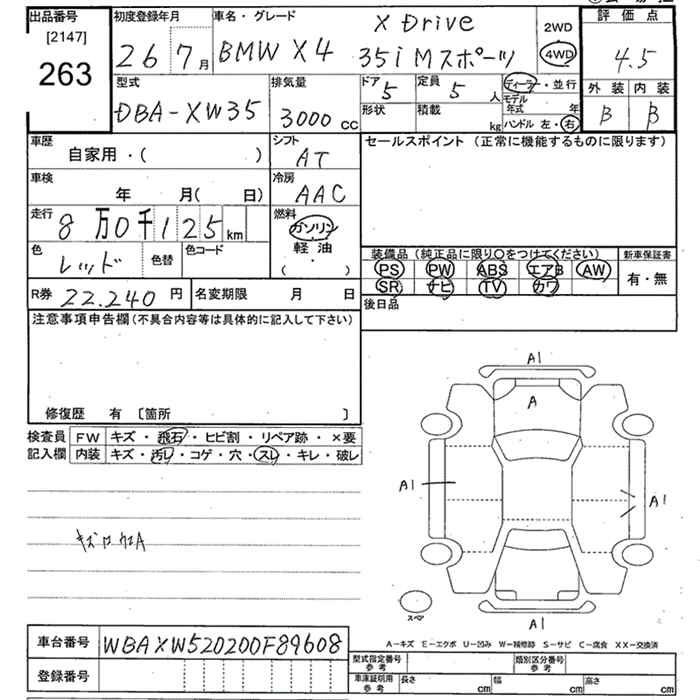 出品番号 初度登録年月 車名・グレード X Drive 2WD 評価点
[2147] 26 7月 BMW X4 35i Mスポーツ 4WD 4.5
263
型式 排気量 ドア 定員 ディーラー・並行 外装 内装
DBA-XW35 3000cc 5 5人 モデル年式 年 B B
形状 積載 kg ハンドル 左・右
車歴 シフト セールスポイント(正常に機能するものに限ります)
自家用・( ) AT
車検 冷房
年 月( 日) AAC
走行 燃料
8万0千125km ガソリン
軽油
( )
色 レッド 色替 色コード
装備品(純正品に限り○をつけてください) 新車保証書
PS PW ABS エアB AW 有・無
SR ナビ TV カワ
R券 22.240円 名変期限 月 日 後日品
注意事項申告欄(不具合内容等は具体的に記入して下さい)
修復歴 有 [箇所 ]
検査員 FW キズ・飛石・ヒビ割・リペア跡・×要
記入欄 内装 キズ・汚レ・コゲ・穴・スレ・キレ・破レ
A1
A
A1 A1
スペア
A1
A-キズ E-エクボ U-凹み W-補修跡 S-サビ C-腐食 XX-交換済
車台番号 WBAXW520200F89608
登録番号
型式指定番号 参考 類別区分番号 参考
車庫証明用 参考 長さ cm 幅 cm 高さ cm